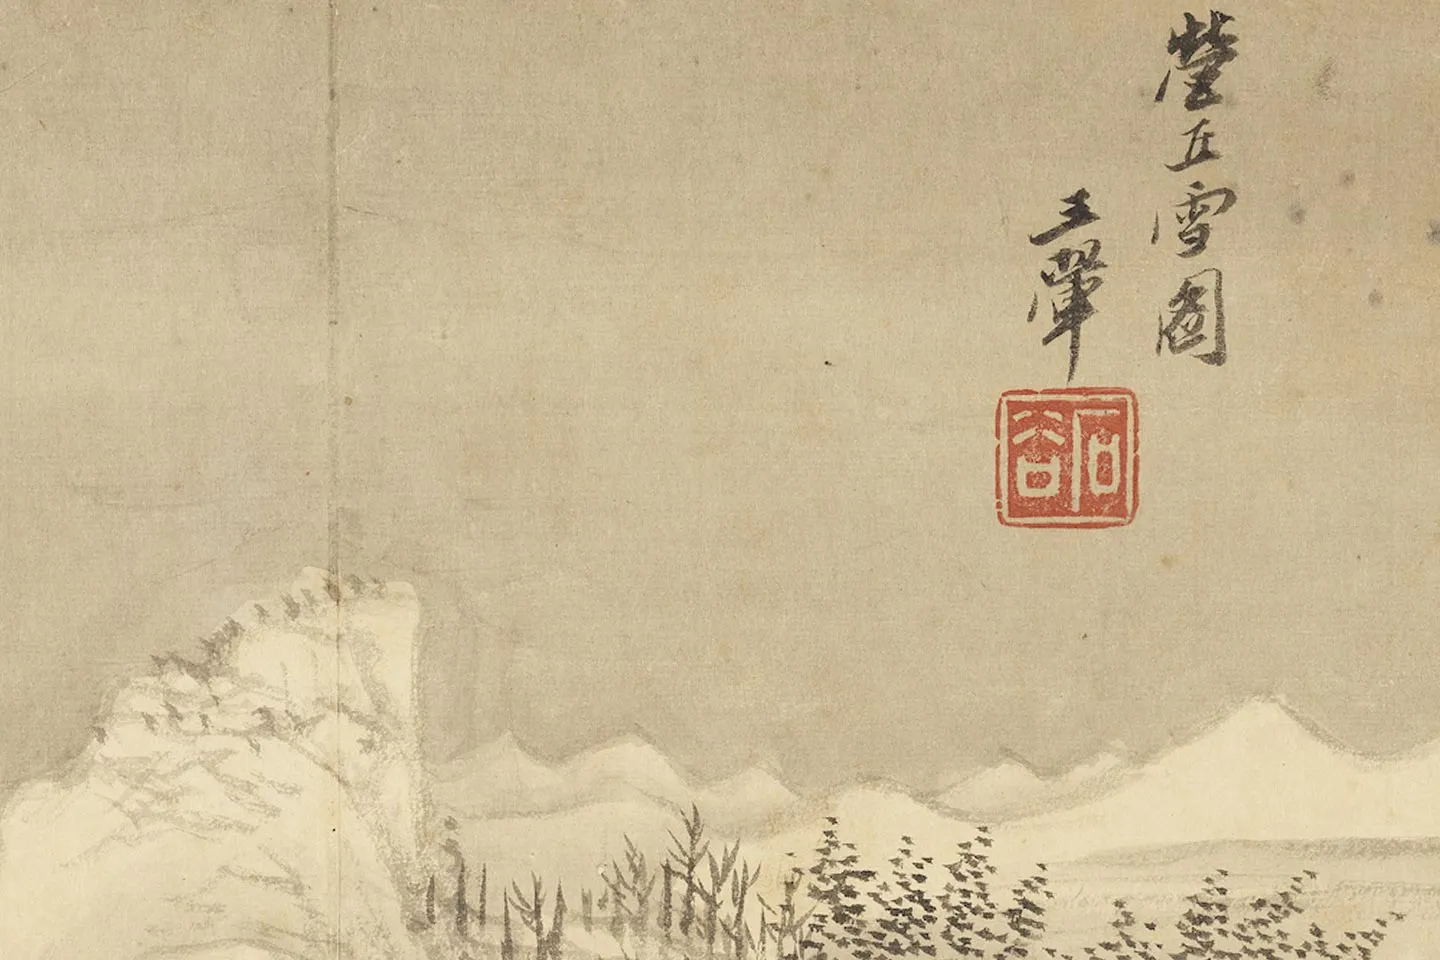 營丘雪圖
王翬
石谷